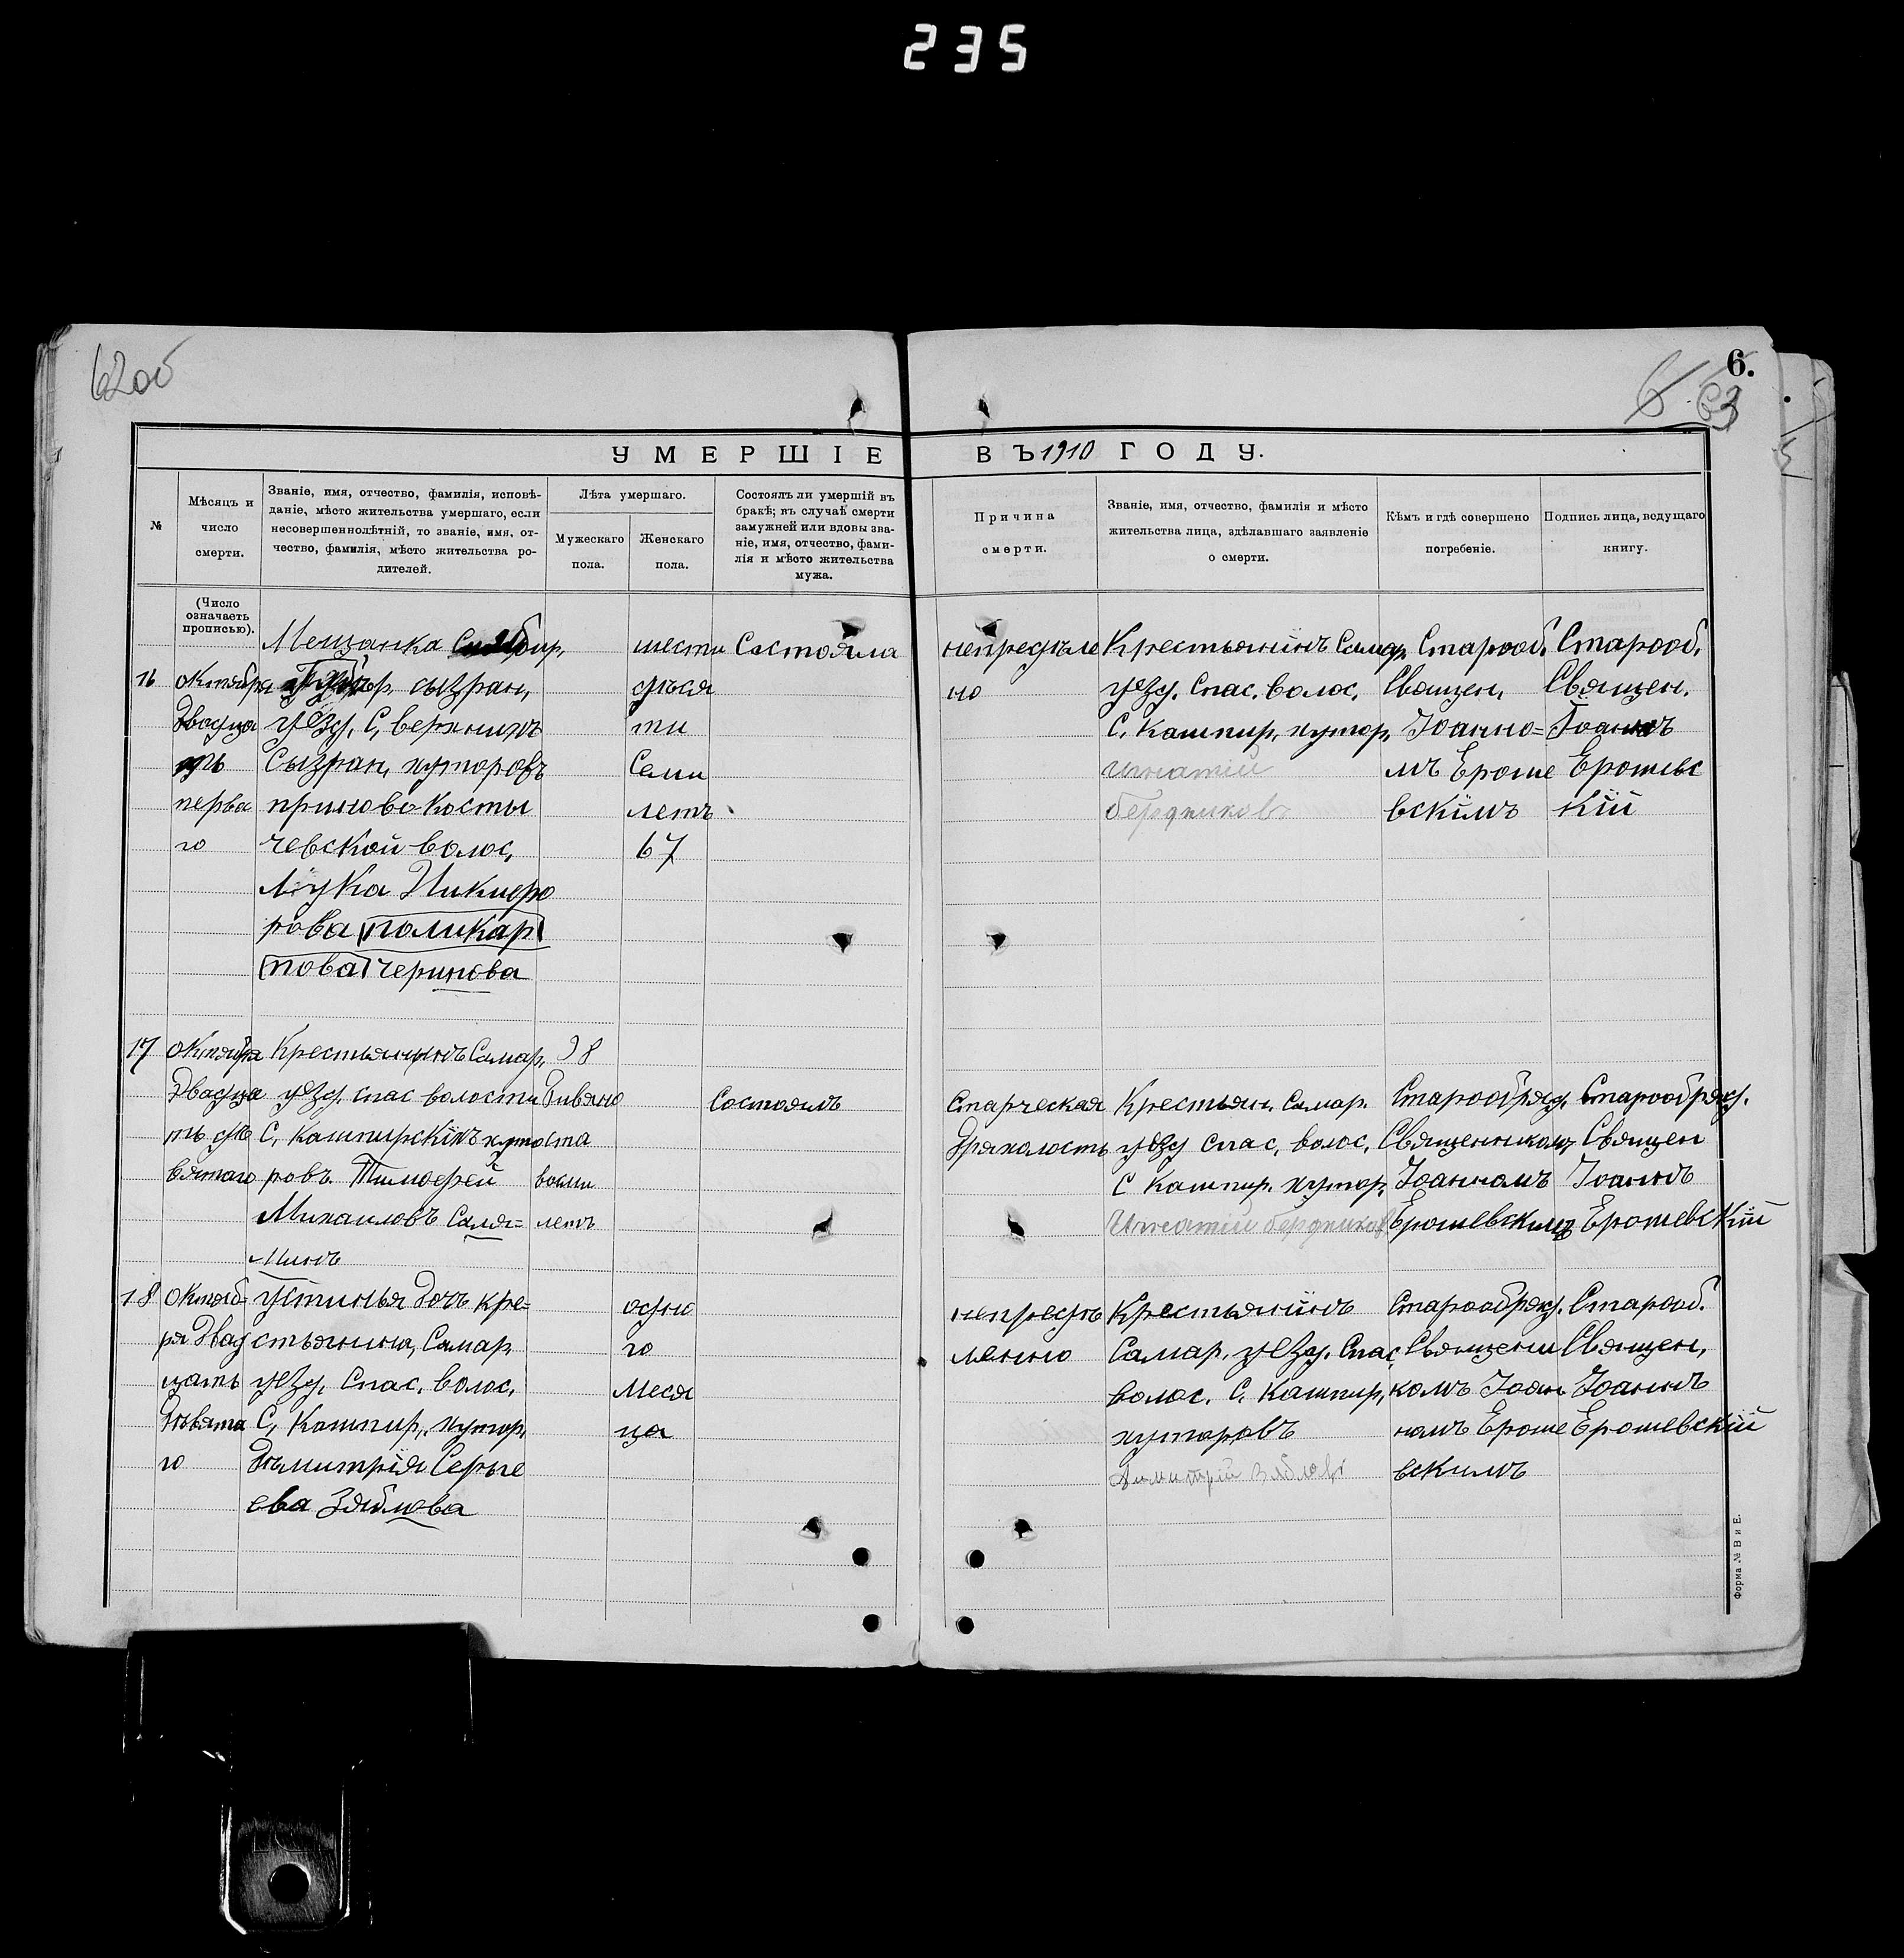 235
62об
6.
6 63
УМЕРШІЕ ВЪ 1910 ГОДУ.
№
Мѣсяцъ и
число
смерти.
Званіе, имя, отчество, фамилія, исповѣ-
даніе, мѣсто жительства умершаго, если
несовершеннолѣтній, то званіе, имя, от-
чество, фамилія, мѣсто жительства ро-
дителей.
Лѣта умершаго.
Мужескаго
пола.
Женскаго
пола.
Состоялъ ли умершій въ
бракѣ; въ случаѣ смерти
замужней или вдовы зва-
ніе, имя, отчество, фами-
лія и мѣсто жительства
мужа.
Причина
смерти.
Званіе, имя, отчество, фамилія и мѣсто
жительства лица, здѣлавшаго заявленіе
о смерти.
Кѣмъ и гдѣ совершено
погребеніе.
Подпись лица, ведущаго
книгу.
(Число
означаеть
прописью).
16
октября
Двадца
ть
перва
го
Мещанка
сызран,
уезд. С, верхнихъ
Сызран, хуторовъ
приново-Косты
чевской волос,
Лукa Никифо
рова (поликар
пова) Черинова
шести
дѣся
ти
Семи
летъ
67
Состояла
непредѣле
но
Крестьянинъ Самар,
уезд. Спас. волос,
С. Кашпир, хутор,
игнатий
бердников
Старооб,
Священ,
Иоанно-
мъ Ероше
вскимъ
Старооб,
Священ.
Иоаннъ
Ерошевс
кий
17
октября
Двадца
ть де
вятого
Крестьянинъ Самар,
уезд. спас волости
С, Кашпирскихъ хуто
ровъ. Тимофей
Михаиловъ Саля-
минъ
98
Дивяно
ста
восми
летъ
Состоялъ
Старческая
Дряхлость
Крестьян. Самар.
уезд спас, волос,
С Кашпир. хутор,
Игнатий бердников
Старообряд,
Священникомъ
Иоанномъ
Ерошевскимъ
Старообряд.
Священ
Иоаннъ
Ерошевский
18
Октяб-
ря Двад
цать
Дѣвята
го
Устинья Дочь кре-
стьянина, Самар
уезд, Спас, волос,
С, Кашпир, хутор,
Дѣмитрия Серье
ева Зяблова
одно
го
Меся
ца
непредѣ
ленно
Крестьянинъ
Самар. уезд. Спас,
волос. С. Кашпир,
хуторовъ
Димитрий Зяблов
Старообряд.
Священни
комъ Иоан
номъ Ероше
вскимъ
Старооб.
Священ,
Иоаннъ
Ерошевский
Форма № В и Е.